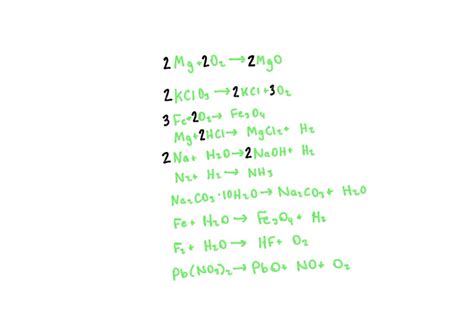 2Mg+2O₂→2MgO
2KClO₃→2KCl+3O₂
3Fe+2O₂→Fe₃O₄
Mg+2HCl→MgCl₂+H₂
2Na+H₂O→2NaOH+H₂
N₂+H₂→NH₃
Na₂CO₃·10H₂O→Na₂CO₃+H₂O
Fe+H₂O→Fe₃O₄+H₂
F₂+H₂O→HF+O₂
Pb(NO₃)₂→PbO+NO+O₂